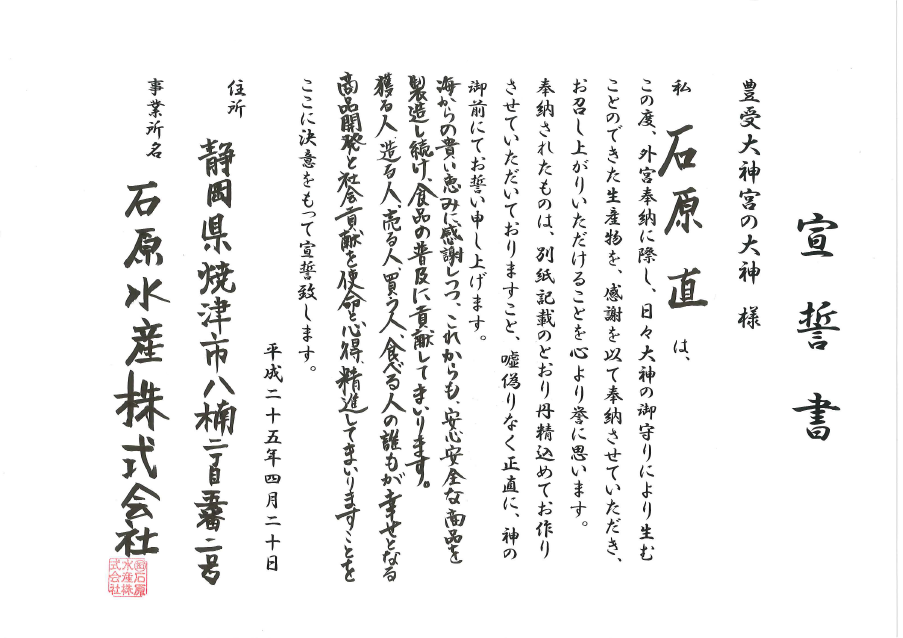 宣誓書
豊受大神宮の大神 様
私 石原 直 は、
この度、外宮奉納に際し、日々大神の御守りにより生む
ことのできた生産物を、感謝を以て奉納させていただき、
お召し上がりいただけることを心より誉に思います。
奉納されたものは、別紙記載のとおり丹精込めてお作り
させていただいておりますこと、嘘偽りなく正直に、神の
御前にてお誓い申し上げます。
海からの貴い恵みに感謝しつつ、これからも、安心安全な商品を
製造し続け、食品の普及に貢献してまいります。
獲る人、造る人、売る人、買う人、食べる人の誰もが幸せとなる
商品開発と社会貢献を使命と心得、精進してまいりますことを
ここに決意をもって宣誓致します。
平成二十五年四月二十日
住所 静岡県焼津市八楠二丁目五番二号
事業所名 石原水産株式会社
石原
水産株
式会社